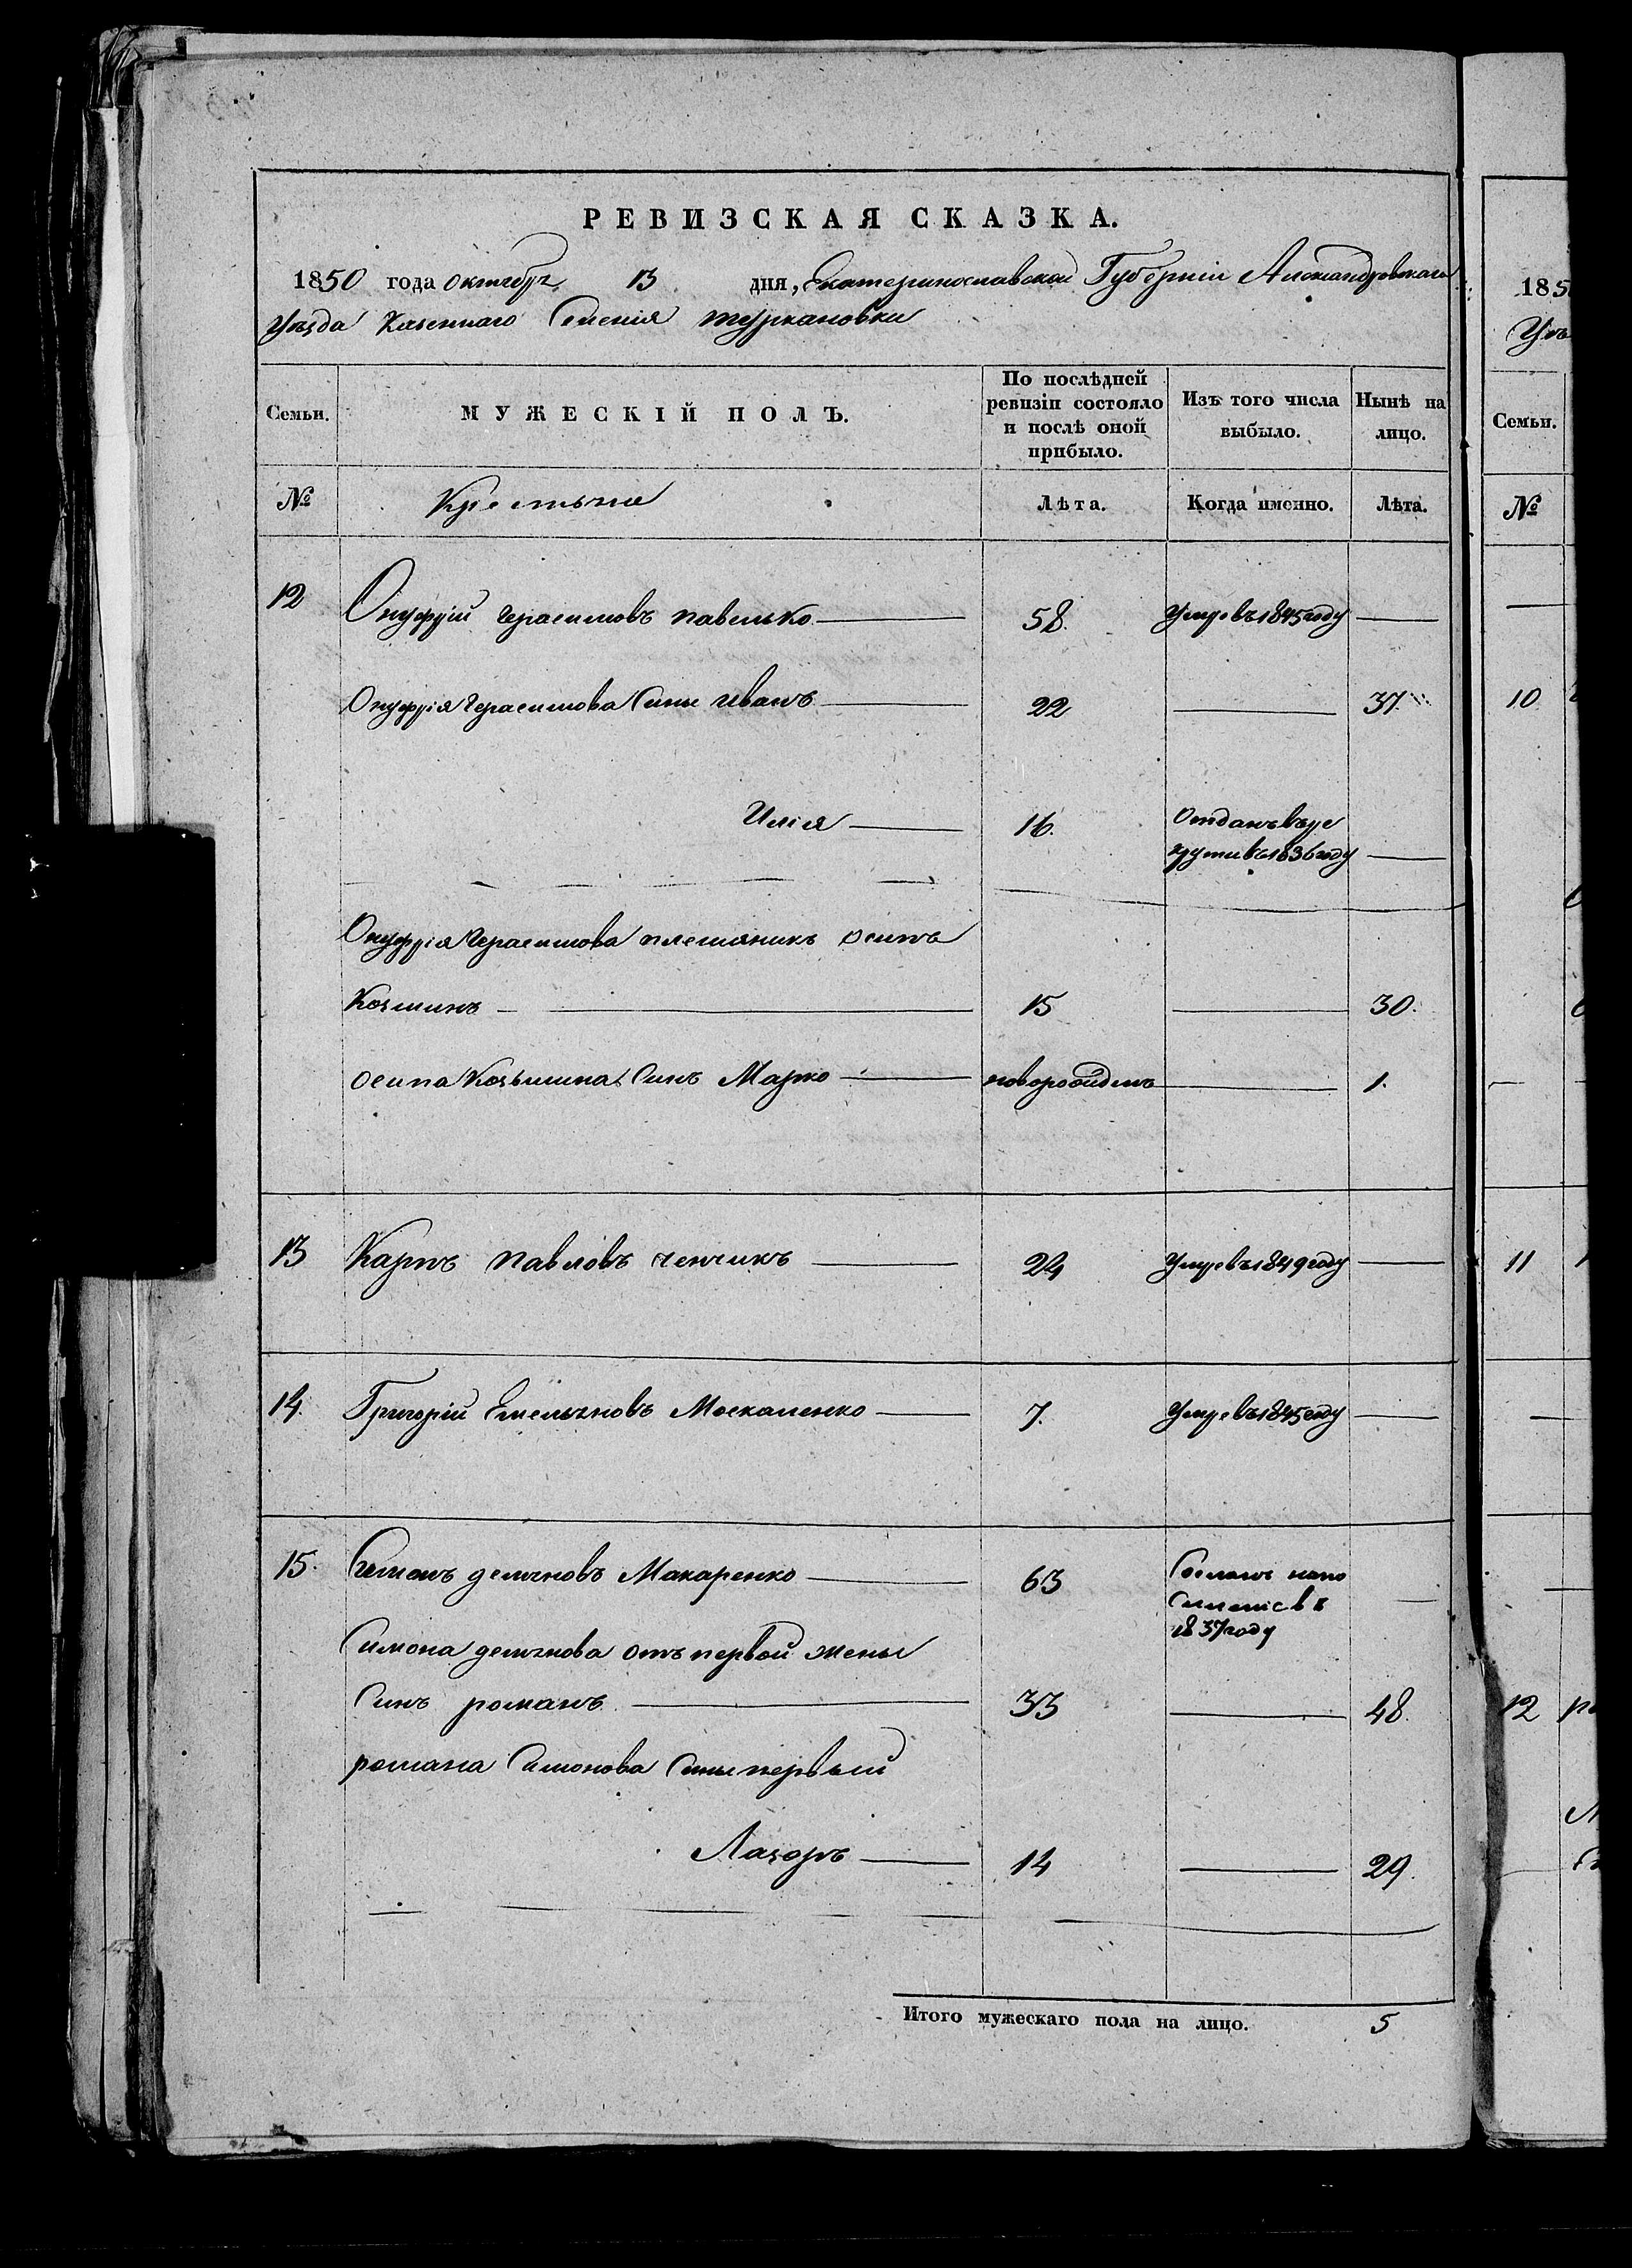 РЕВИЗСКАЯ СКАЗКА.
1850 года октября 13 дня, Екатеринославской Губерніи Александровскаго
уѣзда Казеннаго Селенія туркановки
Семьи. МУЖЕСКІЙ ПОЛЪ. По послѣдней ревизіи состояло и послѣ оной прибыло. Изъ того числа выбыло. Нынѣ на лицо.
№ Крестьяне Лѣта. Когда именно. Лѣта.
12 Онуфрій Герасимовъ павелько 58. умре въ 1845 году
Онуфрія Герасимова Сины иванъ 22 37.
Илія 16. Отданъ въ ре
круты въ 1836 году
Онуфрія Герасимова племяникъ осипъ
Козминъ 15 30.
осипа Козьмина Синъ Марко новорождень 1.
13 Карпъ павловъ 24 умре въ 1849 году
14. Григорій Емельяновъ Москаленко 7. умре въ 1845 году
15. Симонъ демяновъ Макаренко 63 Сосланъ на по
Силеніе въ
1837 году
Симона демянова отъ первой жены
Синъ романъ 33 48.
романа Симонова Сины первый
Лазоръ 14 29.
Итого мужескаго пола на лицо. 5
185
Уѣ
Семьи.
№
10
11
12